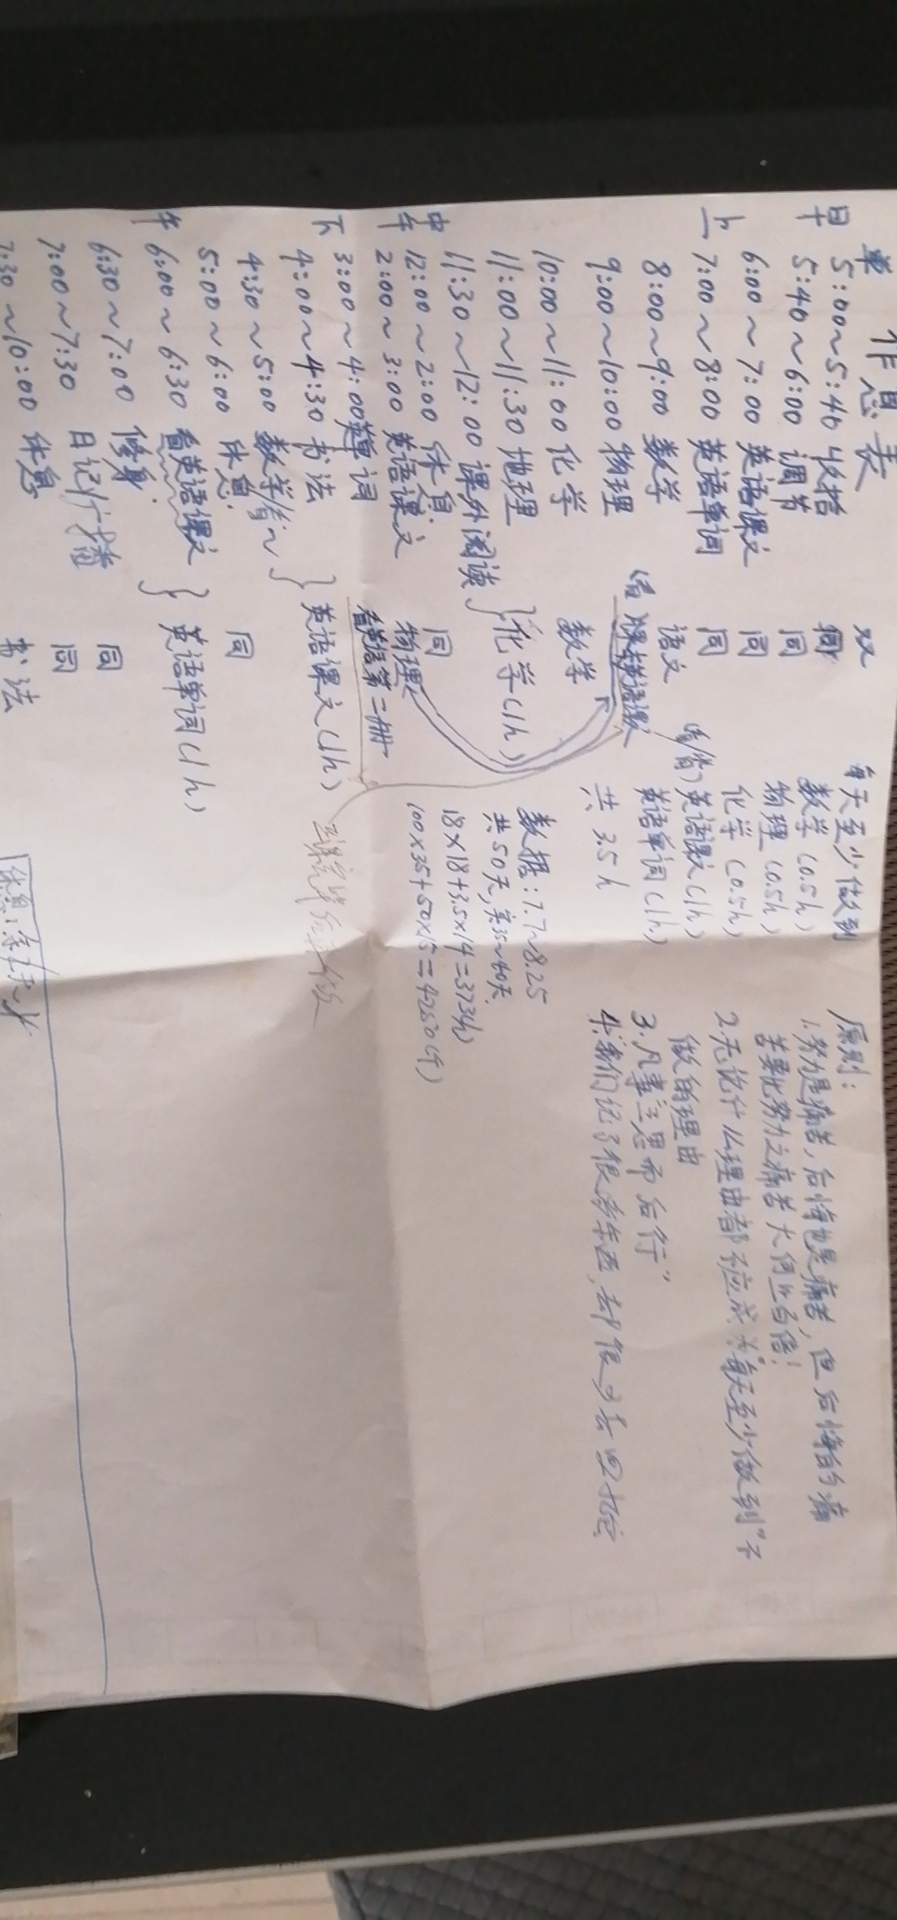 作息表
单 双
早 5:00~5:40 收拾
5:40~6:00 调节 同
6:00~7:00 英语课文 同
上 7:00~8:00 英语单词 同
8:00~9:00 数学 语文
9:00~10:00 物理
10:00~11:00 化学 数学
11:00~11:30 地理
11:30~12:00 课外阅读 } 化学(1h)
中午 12:00~2:00 休息 同
2:00~3:00 英语课文 物理
下 3:00~4:00 单词 看英语第二册
4:00~4:30 书法
4:30~5:00 数学 } 英语课文(1h)
5:00~6:00 休息 同
午 6:00~6:30 看英语课文
6:30~7:00 修身 } 英语单词(1h)
7:00~7:30 日记 同
7:30~10:00 休息 书法
同
每天至少做到
数学(0.5h)
物理(0.5h)
化学(0.5h)
英语课文(1h)
英语单词(1h)
共 3.5h
数据:7.7~8.25
共50天,实35~40天
18×18+3.5×14=373(h)
100×35+50×15=4250(个)
原则:
1.努力是痛苦,后悔也是痛苦,但后悔的痛
苦要比努力之痛苦大何止百倍!
2.无论什么理由都不应成为“每天至少做到”不
做的理由
3.凡事“三思而后行”
4.我们说了很多东西,却很少去
休息: